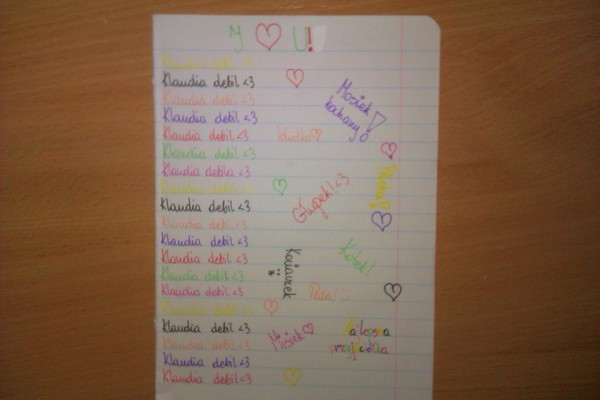 I ♡ U!
Klaudia debil <3
Klaudia debil <3
Klaudia debil <3
Klaudia debil <3
Klaudia debil <3
Klaudia debil <3
Klaudia debila <3
Klaudia debil <3
Klaudia debil <3
Klaudia debil <3
Klaudia debil <3
Klaudia debil <3
Klaudia debil <3
Klaudia debil <3
Klaudia debil <3
Klaudia debil <3
Klaudia debil <3
Klaudia debil <3
Klaudia debil <3
kochany!
Głupek! <3
Kotek!
Kociaczek :*
Misiek ♡
Najlepsza
przyjaciółka